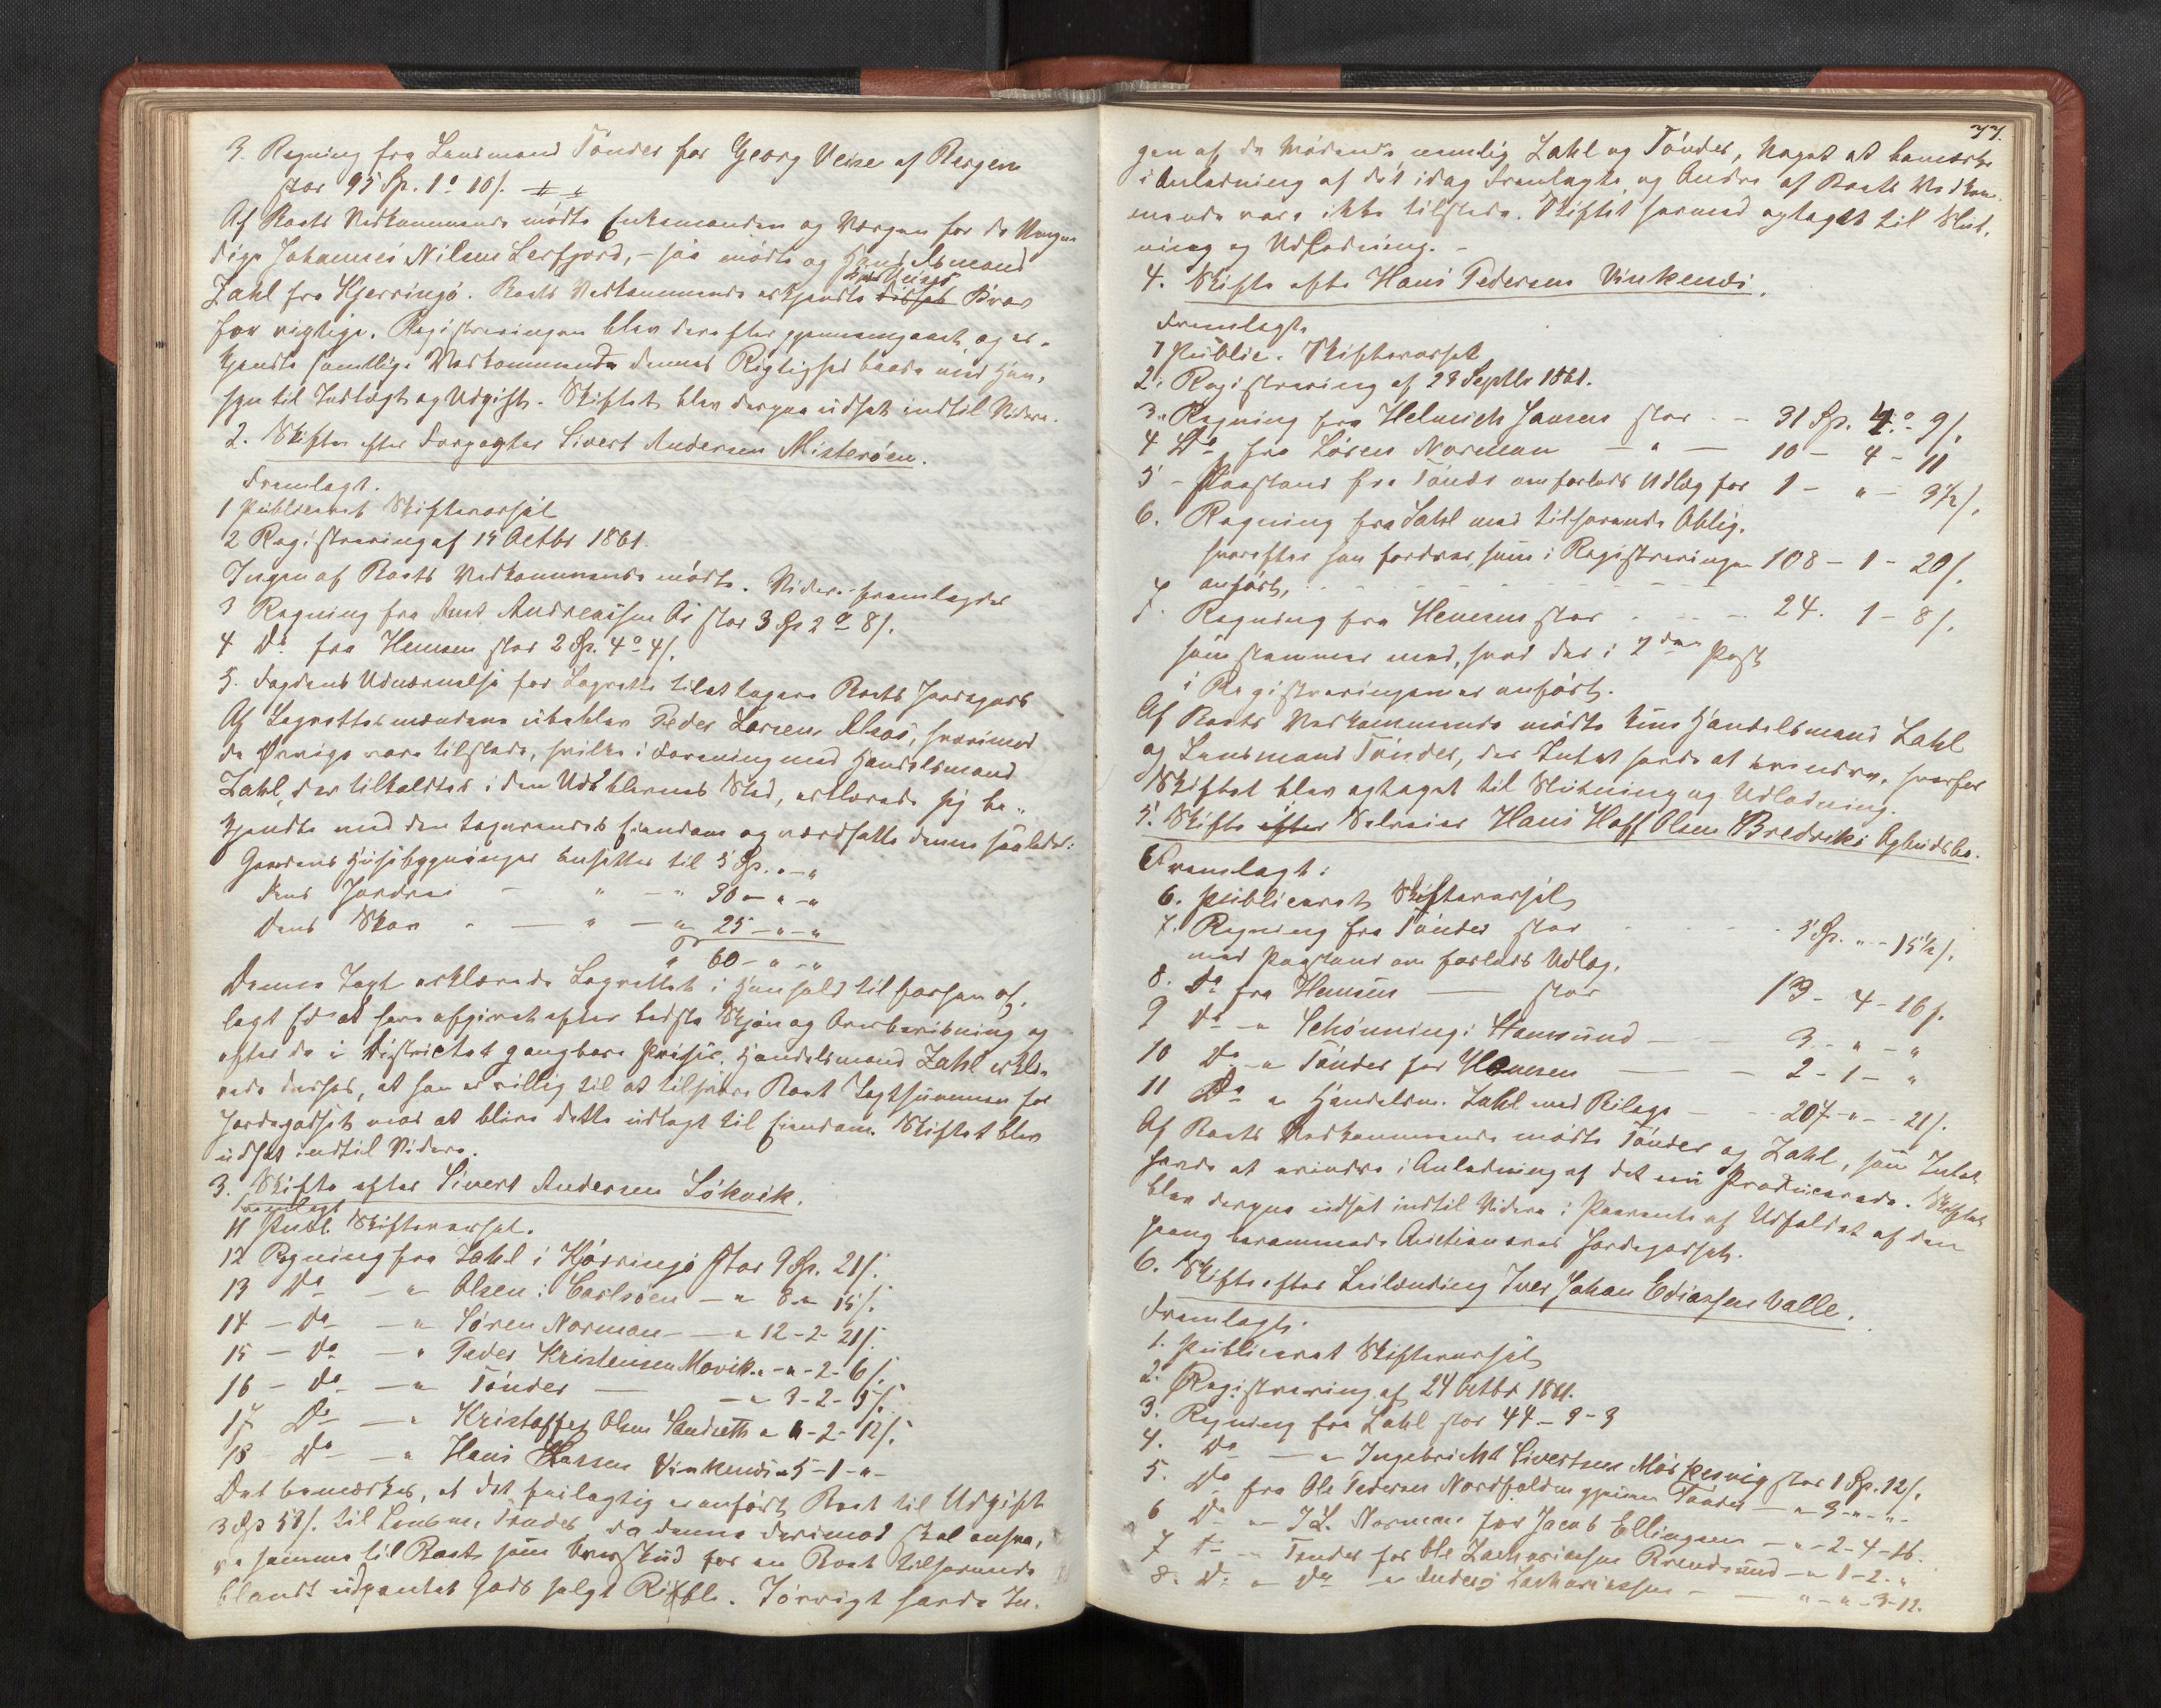 3. Regning fra Lensmand Tönder for Georg Veise af Bergen
stor 95 Sp. 1 o 10 s.
Af Boets Vedkommende mødte Enkemanden og Værgen for de Umyn-
dige Johannes Nilsen Lerfjord, – saa mødte og Handelsmand
Zahl fra Kjerringö. Boets Vedkommende erkjendte Krav
for rigtige. Registreringen blev derefter gjennemgaaet og er-
kjendte samtlige Vedkommende dennes Rigtighed baade med Hen-
syn til Indtægt og Udgift. Skiftet blev derpaa udsat indtil Videre.
2. Skifte efter Forpagter Sivert Andersen Misterøen.
Fremlagt.
1 Publiceret Skiftevarsel
2 Registrering af 19 Octbr 1861.
Ingen af Boets Vedkommende mødte. Videre fremlagdes
3 Regning fra Amt Andreassen Ås stor 3 Sp 2 o 8 s.
4 Do fra Hemsen stor 2 Sp. 4 o 4 s.
5. Fogdens Udnævnelse for Lagrette til at taxere Boets Jordegods
Af Lagrettesmændene udeblev Peder Larsen, hvorimod
de Øvrige vare tilstede, hvilke i Forening med Handelsmand
Zahl, der tilkaldtes i den Udeblevnes Sted, erklærede sig be-
kjendte med den taxerendes Eiendom og værdsatte denne saaledes:
Gaardens Huusbygninger ansættes til 5 Sp. " – "
dens Jordvei – " – " 30 – " – "
dens Skov – " – " 25 – " – "
60 – " – "
Denne Taxt erklærede Lagrettet i Henhold til forhen af-
lagt Ed at have afgivet efter bedste Skjøn og Overbeviisning og
efter de i Districtet gangbare Priser. Handelsmand Zahl erklæ-
rede derhos, at han er villig til at tilsvare Boet Taxtsummen for
Jordegodset mod at blive dette udlagt til Eiendom. Skiftet blev
udsat indtil Videre.
3. Skifte efter Sivert Andersen Løkvik.
Fremlagt
11 Publ. Skiftevarsel.
12 Regning fra Zahl i Kjerringö stor 9 Sp. 21 s.
13 Do – " Olsen i Carlsøen – " 8 " 15 s.
14 – do – " Sören Norman – " 12 – 2 – 21 s.
15 – do – " Peder Kristensen Movik – " – 2 – 6 s.
16 – do – " Tönder – " 3 – 2 – 5 s.
17 Do – " Kristoffer Olsen – 2 – 12 s.
18 Do – " Hans Hansen Vinkenæs " 5 – 1 – " –
Det bemærkes, at det feilagtig er anført Boet til Udgift
3 Sp 58 s. til Lensm. Tönder, da denne derimod skal ansva-
re samme til Boet som Overskud for en Boet tilhørende
blandt udpantet Gods solgt. Forøvrigt havde In-
77.
gen af de Mødende, nemlig Zahl og Tönder, Noget at bemærke
i Anledning af det idag Fremlagte, og Andre af Boets Vedkom-
mende vare ikke tilstede. Skiftet hermed optaget til Slut-
ning og Udlodning. –
4. Skifte efter Hans Pedersen Vinkenæs.
Fremlagt
1 Public. Skiftevarsel
2. Registrering af 28 Septbr 1861.
3. Regning fra Helmich Jansen stor – 31 Sp. 4 o 9 s.
4 Do fra Sören Norman – " – 10 – 4 – 11
5 – Paastand fra Tönder om forlods Udlæg for 1 – " – 3½ s.
6. Regning fra Zahl med tilhørende Oblig.
hvorefter han fordrer, som i Registreringen 108 – 1 – 20 s.
anført,
7. Regning fra Hemsen stor . . . . 24. 1 – 8 s.
som stemmer med, hvad der i 2den Post
i Registreringen er anført.
Af Boets Vedkommende mødte kun Handelsmand Zahl
og Lensmand Tönder, der Intet havde at erindre, hvorfor
Skiftet blev optaget til Slutning og Udlodning.
5. Skifte efter Selveier Hans Hoff Olsen Bredviks Opbudsbo.
Fremlagt:
6. publiceret Skiftevarsel
7. Regning fra Tönder stor . . . . 5 Sp. " – 15½ s.
med Paastand om forlods Udlæg.
8. Do fra Hemsen — stor 19 – 4 – 16 s.
9 Do – " Schönning i Hamsund — 3 – " – "
10 Do – " Tönder for Hemsen — 2 – 1 – "
11 Do " Handelsm. Zahl med Bilage — 207 – " – 21 s.
Af Boets Vedkommende mødte Tönder og Zahl, som Intet
havde at erindre i Anledning af det nu Producerede. Skiftet
blev derpaa udsat indtil Videre i Paavente af Udfaldet af den
berammede Auction over Jordegodset.
6. Skifte efter Leilænding Iver Johan Ediassen Valle.
Fremlagt.
1. publiceret Skiftevarsel
2. Registrering af 24 Octbr 1861.
3. Regning fra Zahl stor 44 – 9 – 3
4. Do — " Ingebricht Sivertsen Mørsvig stor 1 Sp. 12 s.
5. Do fra Ole Pedersen Nordfolden gjennem Tönder – " 3 – " – " –
6 Do – " Norman for Jacob Ellingsen – " – 2 – 4 – 16.
7 Do – " Tönder for Ole Zachariassen Brændsund – " 1 – 2 – "
8. Do " Do " Anders Zachariassen – " – " – 3 – 12.